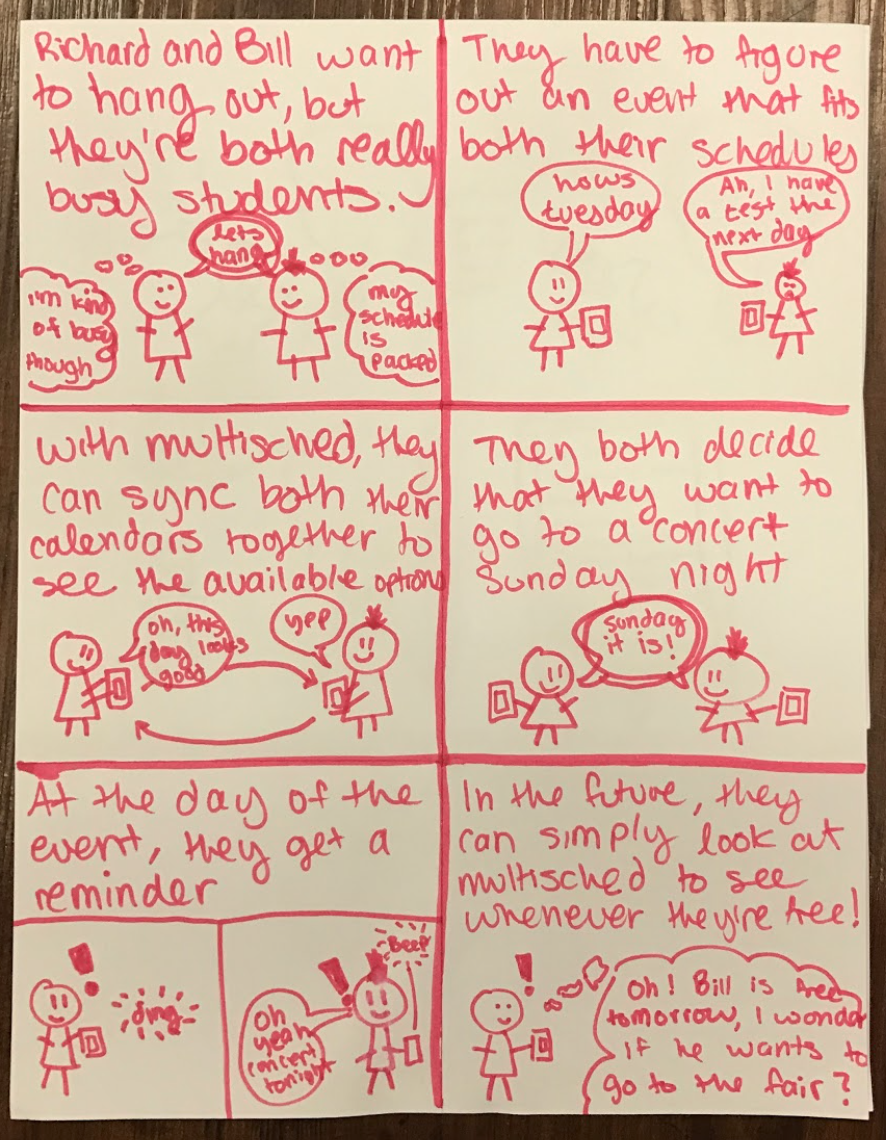 Richard and Bill want
to hang out, but
they're both really
busy students.
lets
hang
I'm kind
of busy
though
my
schedule
is
packed
They have to figure
out an event that fits
both their schedules
hows
tuesday
Ah, I have
a test the
next day
with multisched, they
can sync both their
calendars together to
see the available options
oh, this
day looks
good
yep
They both decide
that they want to
go to a concert
Sunday night
Sunday
it is!
At the day of the
event, they get a
reminder
ding
!
Beep
!
Oh
yeah
concert
tonight
In the future, they
can simply look at
multisched to see
whenever they're free!
!
Oh! Bill is free
tomorrow, I wonder
if he wants to
go to the fair?